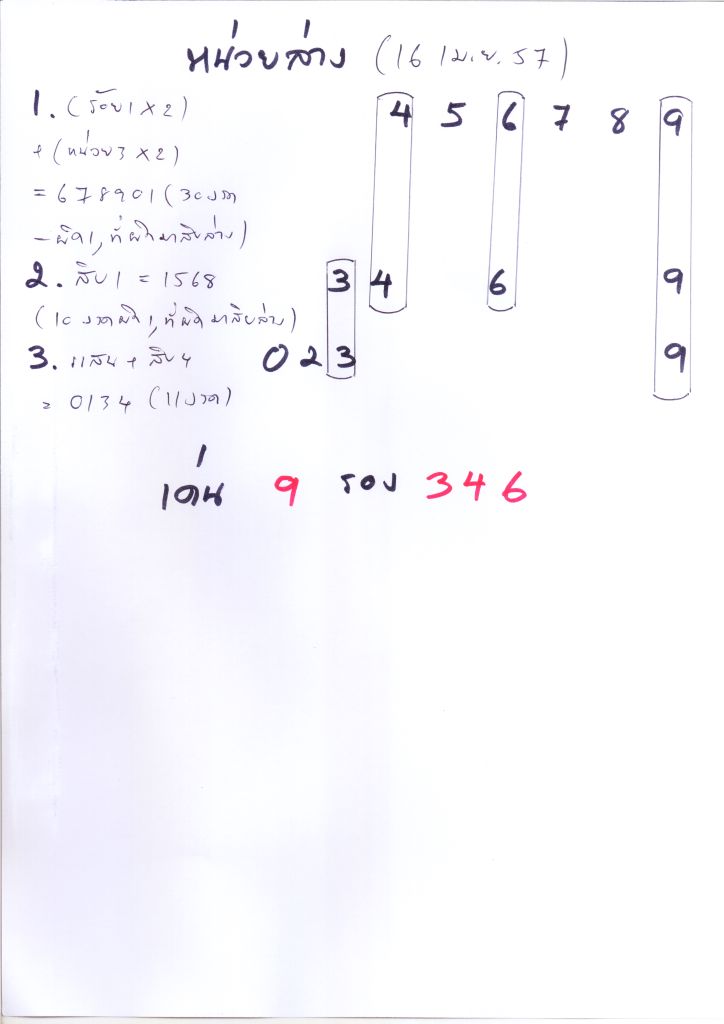 หน่วยล่าง (16 เม.ย. 57)
1. (ร้อย 1 x 2) 4 5 6 7 8 9
+ (หน่วย 3 x 2)
= 678901 (30 งวด
- ผิด 1, ที่ผิดมาสิบล่าง)
2. สิบ 1 = 1568 3 4 6 9
(10 งวดผิด 1, ที่ผิดมาสิบล่าง)
3. แสน + สิบ 4 0 2 3 9
= 0134 (11 งวด)
เด่น 9 รอง 3 4 6